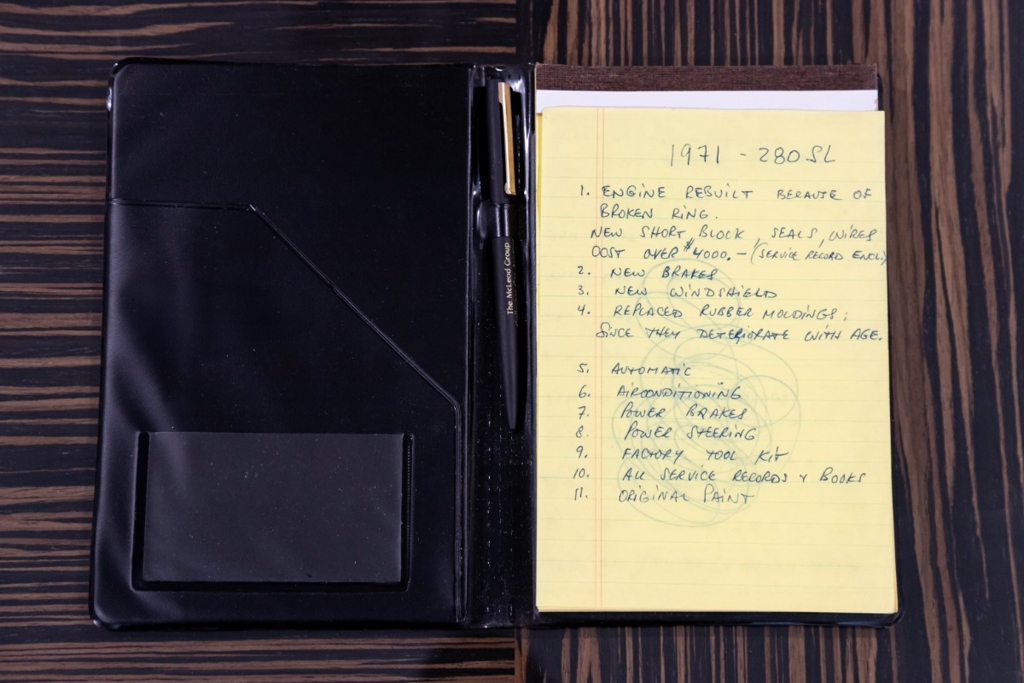 The McLeod Group
1971 - 280 SL
1. ENGINE REBUILT BECAUTE OF
BROKEN RING.
NEW SHORT BLOCK, SEALS, WIRES
COST OVER $4000.- (SERVICE RECORD ENCL)
2. NEW BRAKES
3. NEW WINDSHIELD
4. REPLACED RUBBER MOLDINGS;
SINCE THEY DETERIORATE WITH AGE.
5. AUTOMATIC
6. AIRCONDITIONING
7. POWER BRAKES
8. POWER STEERING
9. FACTORY TOOL KIT
10. ALL SERVICE RECORDS + BOOKS
11. ORIGINAL PAINT